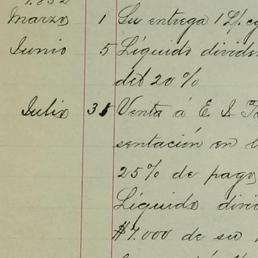 Marzo 1 Su entrega 1 L/.
Junio 5 Líquido divide
del 20%
Julio 31 Venta á E. I.
sentación en
25% de pago
Líquido divi
$7.000 de su